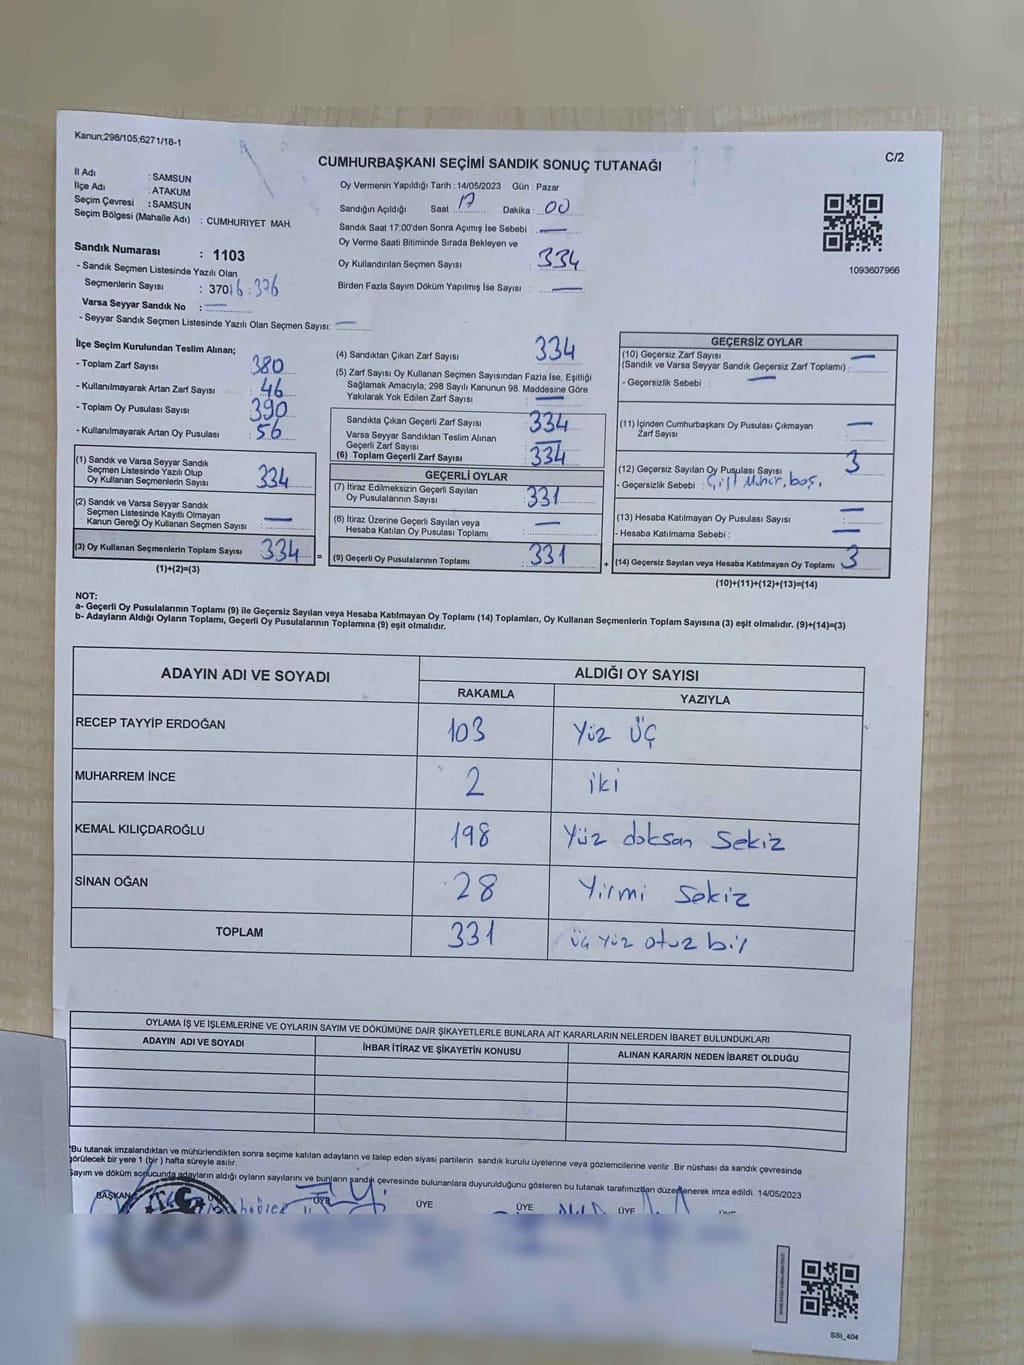 Kanun;298/105;6271/18-1
C/2
CUMHURBAŞKANI SEÇİMİ SANDIK SONUÇ TUTANAĞI
İl Adı : SAMSUN
İlçe Adı : ATAKUM
Seçim Çevresi : SAMSUN
Seçim Bölgesi (Mahalle Adı) : CUMHURIYET MAH.
Sandık Numarası : 1103
- Sandık Seçmen Listesinde Yazılı Olan
Seçmenlerin Sayısı : 370
Varsa Seyyar Sandık No : —
- Seyyar Sandık Seçmen Listesinde Yazılı Olan Seçmen Sayısı: —
Oy Vermenin Yapıldığı Tarih : 14/05/2023 Gün : Pazar
Sandığın Açıldığı Saat : 17 Dakika : 00
Sandık Saat 17:00'den Sonra Açımış İse Sebebi : —
Oy Verme Saati Bitiminde Sırada Bekleyen ve
Oy Kullandırılan Seçmen Sayısı : 334
Birden Fazla Sayım Döküm Yapılmış İse Sayısı : —
1093607966
İlçe Seçim Kurulundan Teslim Alınan;
- Toplam Zarf Sayısı : 380
- Kullanılmayarak Artan Zarf Sayısı : 46
- Toplam Oy Pusulası Sayısı : 390
- Kullanılmayarak Artan Oy Pusulası : 56
(1) Sandık ve Varsa Seyyar Sandık
Seçmen Listesinde Yazılı Olup
Oy Kullanan Seçmenlerin Sayısı : 334
(2) Sandık ve Varsa Seyyar Sandık
Seçmen Listesinde Kayıtlı Olmayan
Kanun Gereği Oy Kullanan Seçmen Sayısı : —
(3) Oy Kullanan Seçmenlerin Toplam Sayısı : 334 =
(1)+(2)=(3)
(4) Sandıktan Çıkan Zarf Sayısı : 334
(5) Zarf Sayısı Oy Kullanan Seçmen Sayısından Fazla İse, Eşitliği
Sağlamak Amacıyla; 298 Sayılı Kanunun 98. Maddesine Göre
Yakılarak Yok Edilen Zarf Sayısı : —
Sandıkta Çıkan Geçerli Zarf Sayısı : 334
Varsa Seyyar Sandıktan Teslim Alınan
Geçerli Zarf Sayısı : —
(6) Toplam Geçerli Zarf Sayısı : 334
GEÇERLİ OYLAR
(7) İtiraz Edilmeksizin Geçerli Sayılan
Oy Pusulalarının Sayısı : 331
(8) İtiraz Üzerine Geçerli Sayılan veya
Hesaba Katılan Oy Pusulası Toplamı : —
(9) Geçerli Oy Pusulalarının Toplamı : 331 +
GEÇERSİZ OYLAR
(10) Geçersiz Zarf Sayısı
(Sandık ve Varsa Seyyar Sandık Geçersiz Zarf Toplamı) : —
- Geçersizlik Sebebi : —
(11) İçinden Cumhurbaşkanı Oy Pusulası Çıkmayan
Zarf Sayısı : —
(12) Geçersiz Sayılan Oy Pusulası Sayısı : 3
- Geçersizlik Sebebi : Çift Mühür, boş,
(13) Hesaba Katılmayan Oy Pusulası Sayısı : —
- Hesaba Katılmama Sebebi : —
(14) Geçersiz Sayılan veya Hesaba Katılmayan Oy Toplamı : 3
(10)+(11)+(12)+(13)=(14)
NOT:
a- Geçerli Oy Pusulalarının Toplamı (9) ile Geçersiz Sayılan veya Hesaba Katılmayan Oy Toplamı (14) Toplamları, Oy Kullanan Seçmenlerin Toplam Sayısına (3) eşit olmalıdır. (9)+(14)=(3)
b- Adayların Aldığı Oyların Toplamı, Geçerli Oy Pusulalarının Toplamına (9) eşit olmalıdır.
ADAYIN ADI VE SOYADI ALDIĞI OY SAYISI
RAKAMLA YAZIYLA
RECEP TAYYİP ERDOĞAN 103 Yüz Üç
MUHARREM İNCE 2 iki
KEMAL KILIÇDAROĞLU 198 Yüz doksan Sekiz
SİNAN OĞAN 28 Yirmi Sekiz
TOPLAM 331 üç yüz otuz bir
OYLAMA İŞ VE İŞLEMLERİNE VE OYLARIN SAYIM VE DÖKÜMÜNE DAİR ŞİKAYETLERLE BUNLARA AİT KARARLARIN NELERDEN İBARET BULUNDUKLARI
ADAYIN ADI VE SOYADI İHBAR İTİRAZ VE ŞİKAYETİN KONUSU ALINAN KARARIN NEDEN İBARET OLDUĞU
*Bu tutanak imzalandıktan ve mühürlendikten sonra seçime katılan adayların ve talep eden siyasi partilerin sandık kurulu üyelerine veya gözlemcilerine verilir .Bir nüshası da sandık çevresinde
görülecek bir yere 1 (bir ) hafta süreyle asılır.
Sayım ve döküm sonucunda adayların aldığı oyların sayılarını ve bunların sandık çevresinde bulunanlara duyurulduğunu gösteren bu tutanak tarafımızdan düzenlenerek imza edildi. 14/05/2023
BAŞKAN ÜYE ÜYE ÜYE ÜYE ÜYE
SSI_404